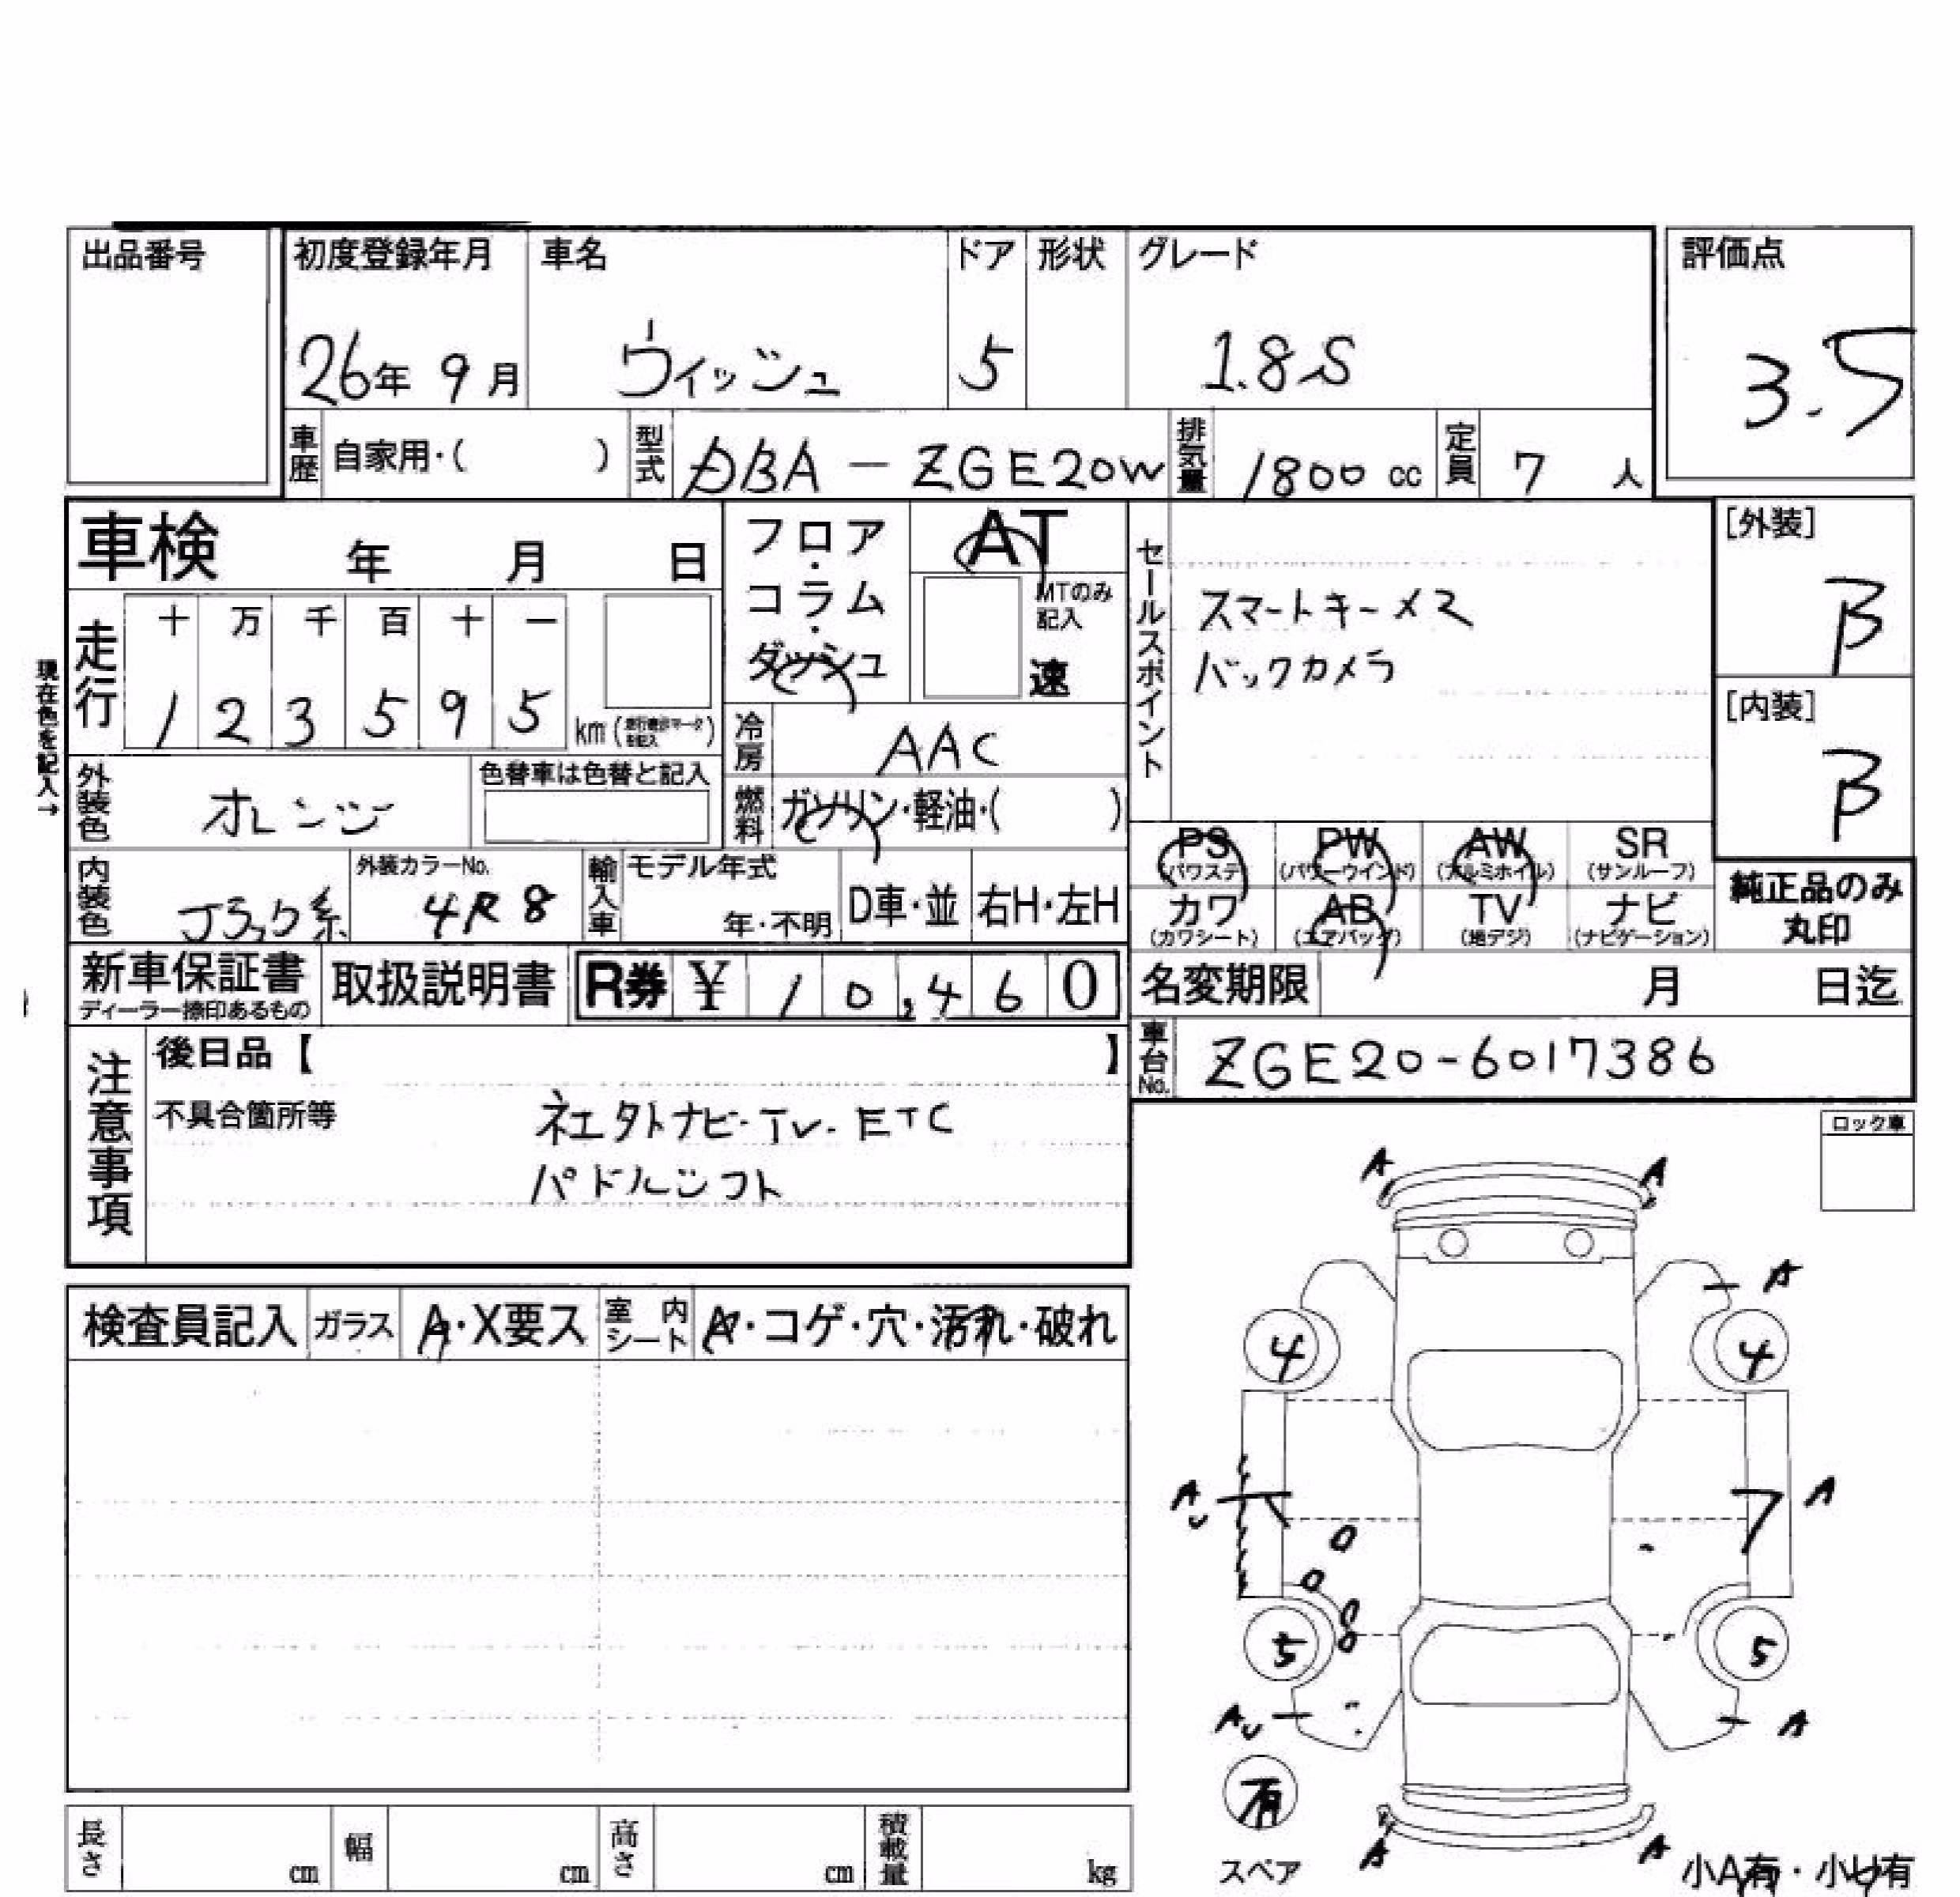 出品番号
初度登録年月 車名 ドア 形状 グレード 評価点
26年 9月 ウィッシュ 5 1.8S 3.5
車歴 自家用・( ) 型式 DBA-ZGE20W 排気量 1800 cc 定員 7 人
車検 年 月 日
フロア・コラム・ダッシュ
AT
MTのみ記入
速
セールスポイント
スマートキー×2
バックカメラ
[外装]
B
[内装]
B
現在色を記入→
走行
十 万 千 百 十 一
1 2 3 5 9 5
km
冷房 AAC
外装色 オレンジ
色替車は色替と記入
燃料 ガソリン・軽油・( )
PS (パワステ) PW (パワーウインド) AW (アルミホイル) SR (サンルーフ)
カワ (カワシート) AB (エアバッグ) TV (地デジ) ナビ (ナビゲーション)
純正品のみ丸印
内装色 ブラック系
外装カラーNo. 4R8
輸入車
モデル年式
年・不明
D車・並 右H・左H
新車保証書
ディーラー捺印あるもの
取扱説明書
R券 ¥ 10,460
名変期限 月 日迄
車台No. ZGE20-6017386
注意事項
後日品【 】
不具合箇所等
社外ナビ・TV・ETC
パドルシフト
ロック車
検査員記入 ガラス A・X要ス 室内シート A・コゲ・穴・汚れ・破れ
A A
A
4 4
AU A
5 5
AU A
有
スペア
A A
小A有・小U有
長さ cm 幅 cm 高さ cm 積載量 kg